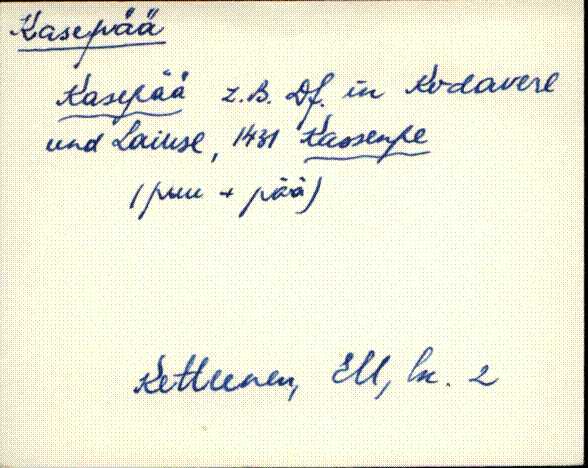 Kasepää
Kasepää z.B. Df. in Kodavere
und Laiuse, 1431 Kassenpe
(puu + pää)
Kettunen, EM, lk. 2